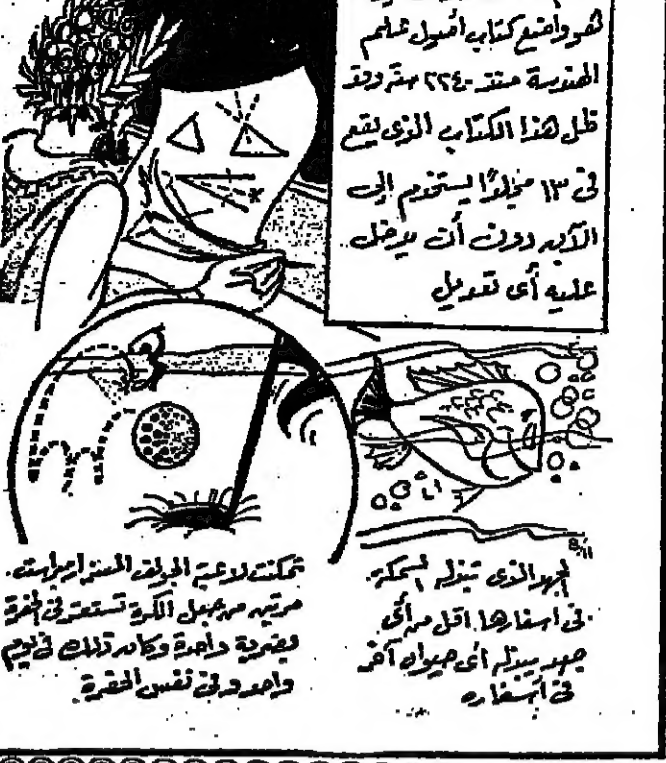 فهو واضع كتاب أصول علم
الهندسة منذ ٢٢٤٠ سنة وقد
ظل هذا الكتاب الذى يقع
فى ١٣ مجلدًا يستخدم إلى
الآن دون أن يدخل
عليه أى تعديل
الجهد الذى تبذله السمكة
فى أسفارها أقل من أى
جهد يبذله أى حيوان آخر
فى أسفاره
تمكنت لاعبة الجولف المسز
مرتين من جعل الكرة تستقر فى الحفرة
بضربة واحدة وكان ذلك فى يوم
واحد وفى نفس الحفرة
8/11